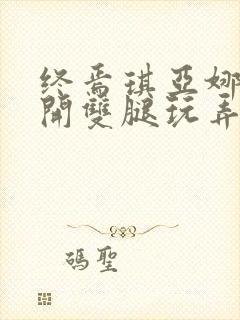 终焉琪亚娜
開雙腿玩弄
碼聖